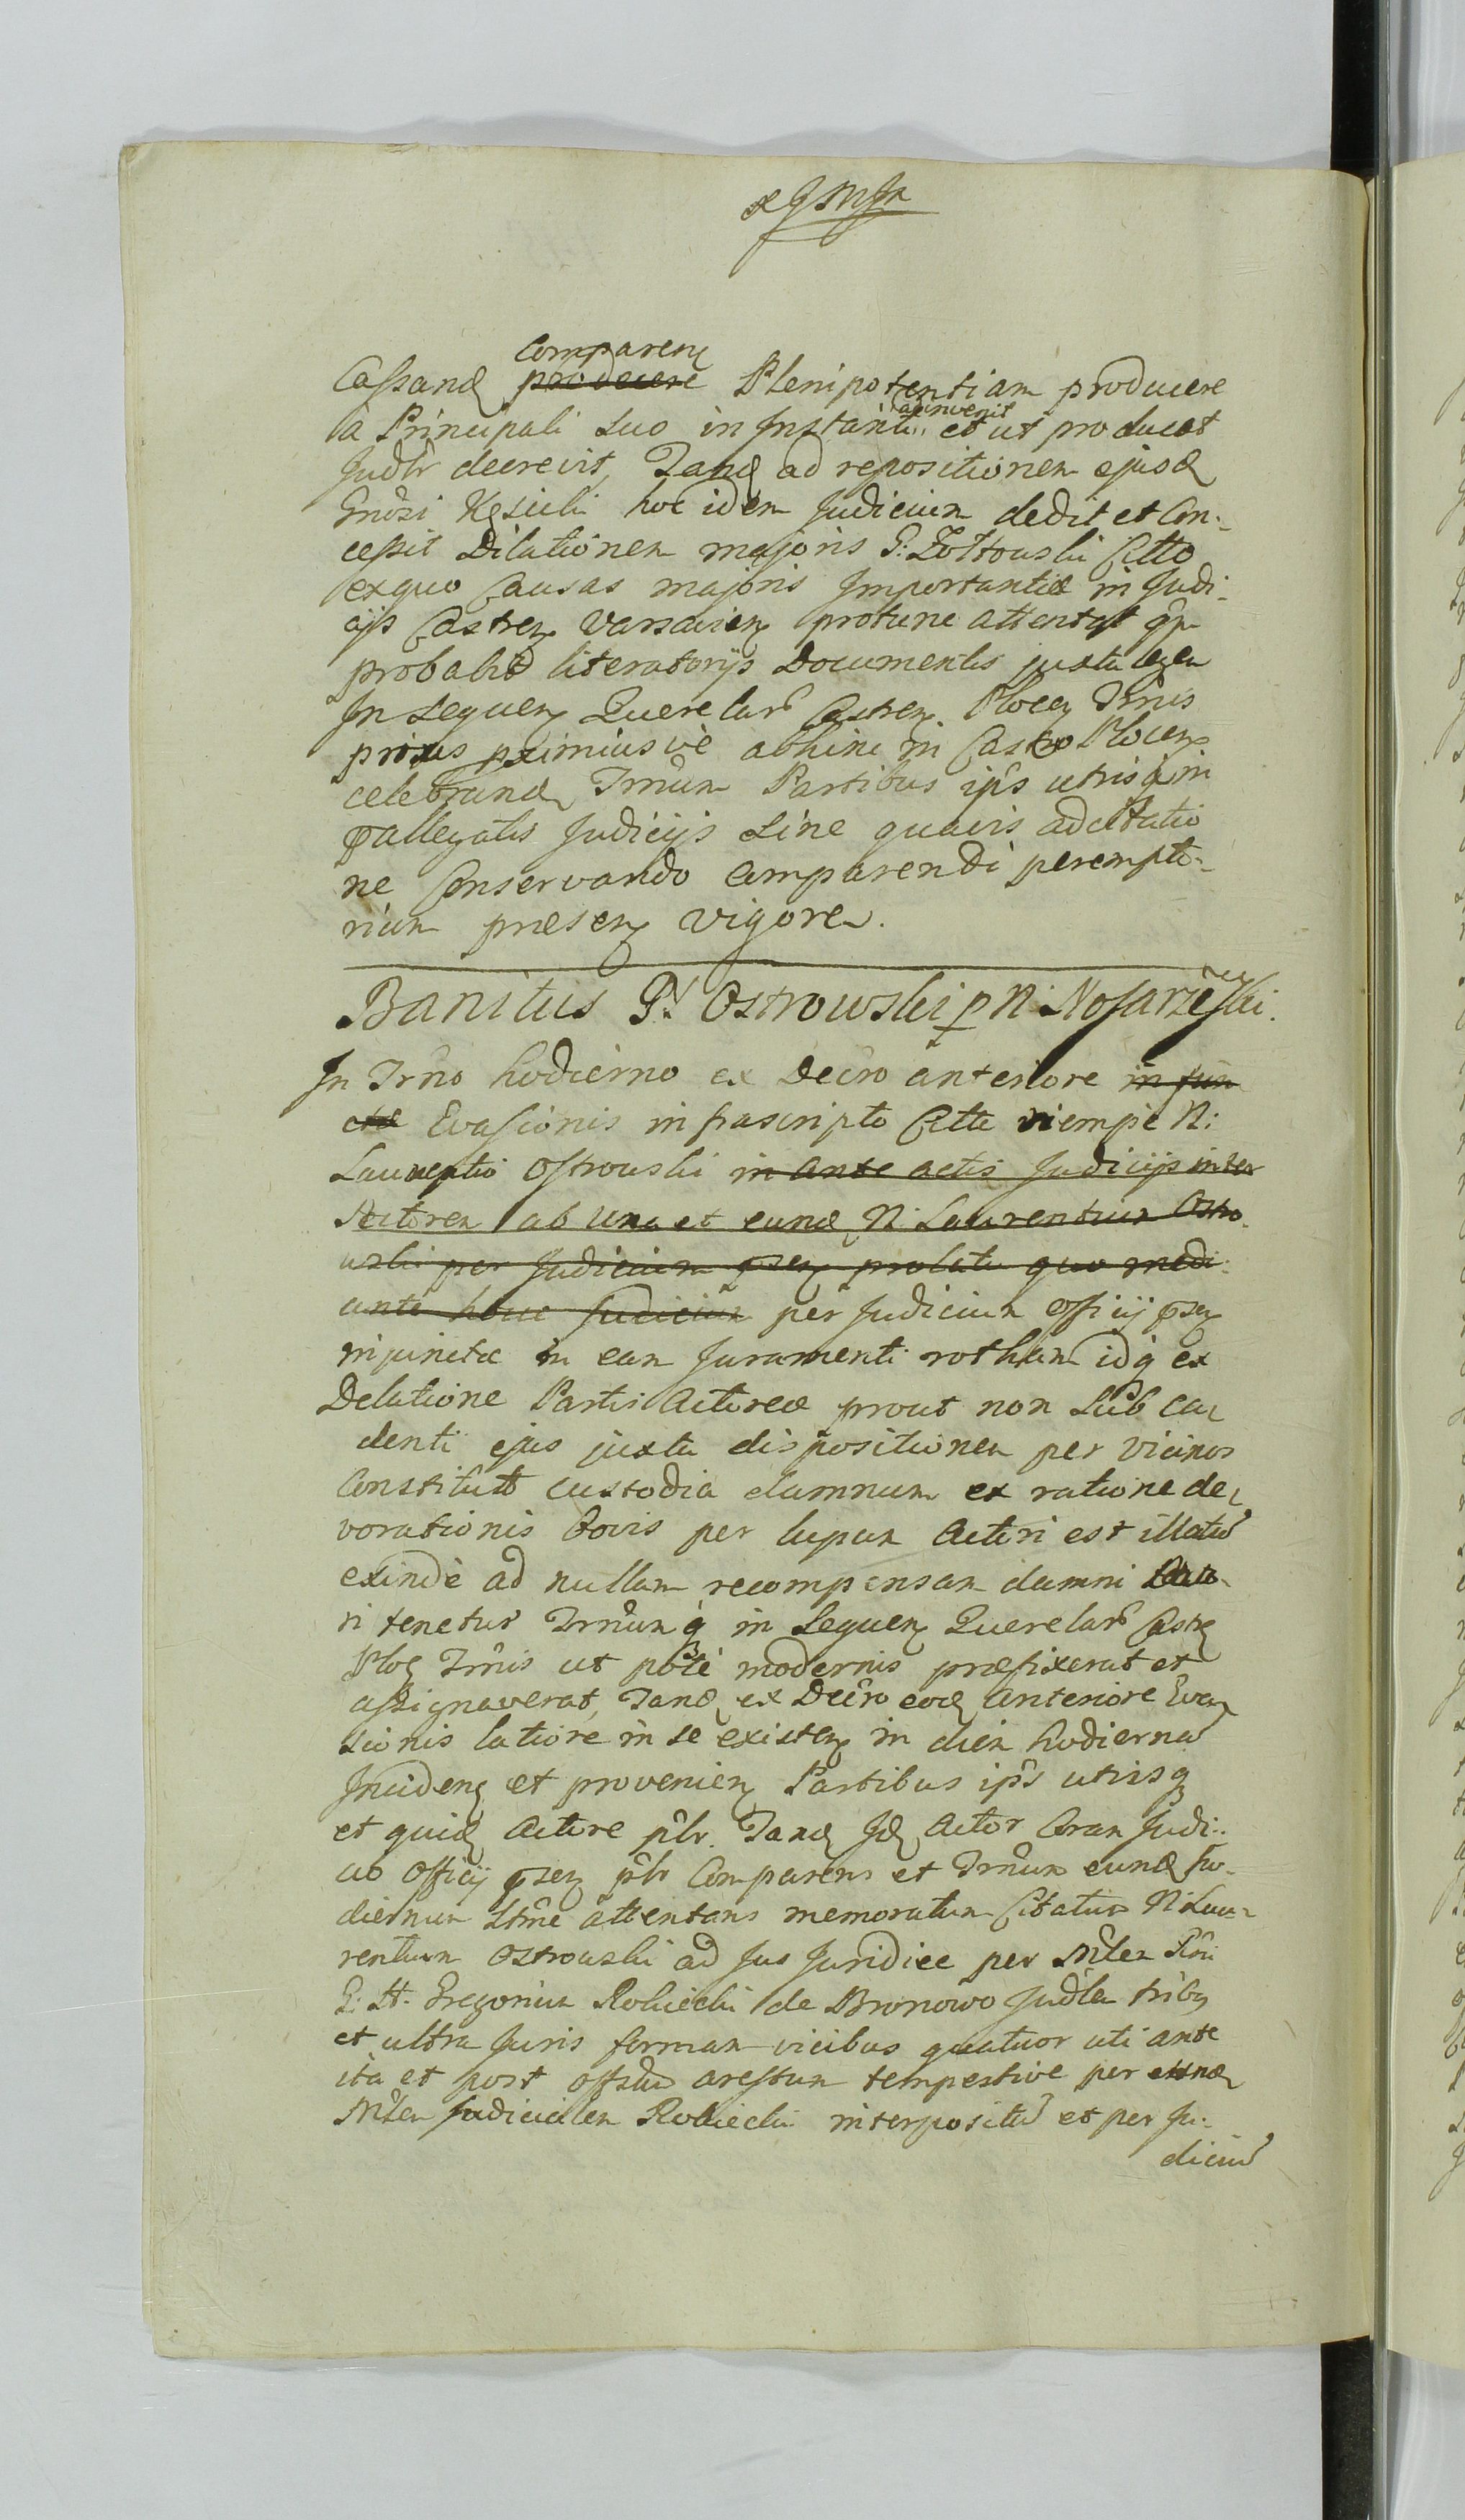 Comparenꝫ
Cassand ~~producere~~ Plenipotentiam producere
à Principali suo in Instanti adinvenit et ut producat
Judtr decrevit, Tand ad repositionem ejusd
Gnosi Kęsicki hoc idem Judicium dedit et Con-
cessit Dilationem majoris G: Zołtowski Ctto
exquo Causas majoris Importantiæ in Judi-
cijs Castren Varsavien protunc attentat
probabit literatorijs Documentis juxta legem
In sequen Querelar Castren Plocen Trnis
proxus primiusve abhinc in Castro Plocen
celebrand Trnum Partibus ips utrisq in
pallegatis Judicijs sine quavis adcitatio
ne Conservando comparendi perempto-
rium præsen vigore.
Banitus Gl Ostrowski p N: Nosarzewski.
In Trno hodierno ex Decro anteriore ~~in fun~~
~~cto~~ Evasionis infrascripto Ctto nempe N:
Laurentio Ostrowski ~~in ante actis Judicijs inter~~
~~Actorem ab una et eund N: Laurentium Ostro-~~
~~wski per Judicium psen prolato quo medi-~~
~~ante hocce Judicium~~ per Judicium Officij psen
injunctæ in eam Juramenti rotham idq ex
Delatione Partis Actoreæ prout non sub ca-
denti ejus juxta dispositionem per vicinos
Constituto custodia damnum ex ratione de-
vorationis bovis per lupum Actori est illatum
exinde ad nullam recompensam damni Acto-
ri tenetur Trnumq in sequen Querelar Castr
Ploc Trnis ut pote modernis præfixerat et
assignaverat, Tand ex Decro eod anteriore Eva-
sionis latiore in se existen in diem hodiernam
Inciden et provenien Partibus ips utrisq
et quid Actore plr. Tand Id Actor Coram Judi-
cio Officij psen plr Comparens et Trnum eund ho-
diernum Ltme attentans memoratum Citatum N: Lau-
rentium Ostrowski ad Jus Juridice per Mtem
G: H. Gregorium Rokicki de Bronowo Judlem tribus
et ultra Juris formam vicibus quatuor uti ante
ita et post offsum arestum tempestive per eund
Mtem Judicialem Rokicki interpositum et per Ju-
dicium